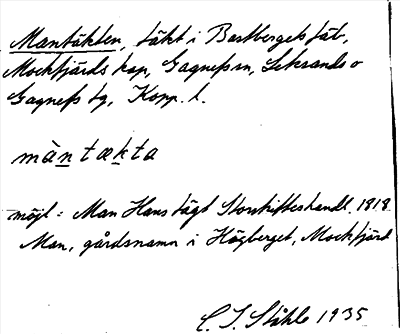 Mantäkten, täkt i Bastbergets fäb.,
Mockfjärds kap., Gagnefs sn, Leksands o
Gagnefs tg, Kopp. l.
màntækta
möjl: Man Hans tägt Storskifteshandl. 1818
Man, gårdsnamn i Högberget, Mockfjärd
C. I. Ståhle 1935